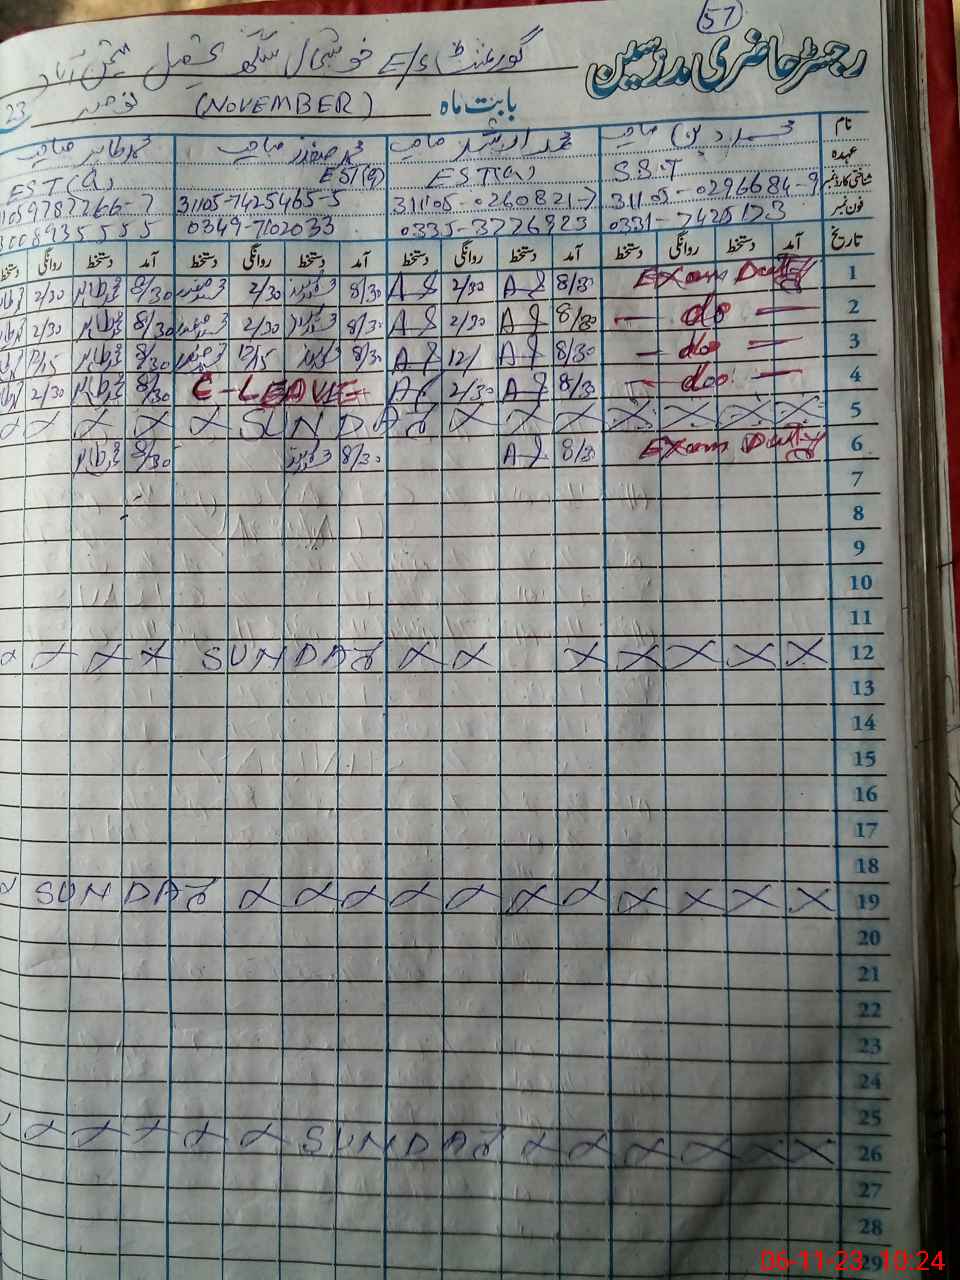 57
رجسٹر حاضری مدرسین
گورنمنٹ E/S خوشحال سنگھ تحصیل
بابت ماہ (NOVEMBER) نومبر 23
نام محمد دین صاحب محمد ارشد صاحب محمد صفدر صاحب محمد طاہر صاحب
عہدہ S.S.T EST(A) EST(A) EST(A)
شناختی کارڈ نمبر 31105-0296684-9 31105-0260821-7 31105-7425465-5 1059787766-7
فون نمبر 0331-7425173 0335-3776923 0349-7102033 3008935555
تاریخ آمد دستخط روانگی دستخط آمد دستخط روانگی دستخط آمد دستخط روانگی دستخط آمد دستخط روانگی دستخط
1 Exam Duty 8/30 2/30 8/30 2/30 8/30 2/30
2 — do — 8/30 2/30 8/30 2/30 8/30 2/30
3 — do — 8/30 12/ 8/30 12/15 8/30 12/15
4 — do — 8/30 2/30 C-LEAVE 8/30 2/30
5 x x x x x x x SUNDAY x x x x
6 Exam Duty 8/30 8/30 8/30
7
8
9
10
11
12 x x x x x x x SUNDAY x x x x
13
14
15
16
17
18
19 x x x x x x x x x x x SUNDAY x
20
21
22
23
24
25
26 x x x x x x SUNDAY x x x x x
27
28
29
06-11-23 10:24